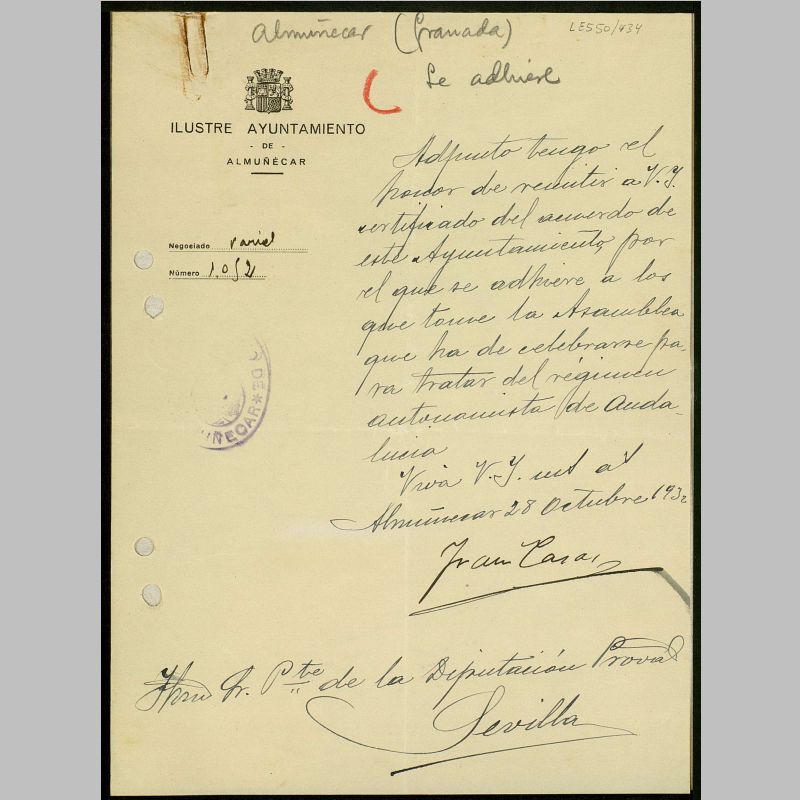 Almuñecar (Granada)
LE550/434
Se adhiere
ILUSTRE AYUNTAMIENTO
- DE -
ALMUÑÉCAR
Negociado varios
Número 1.052
Adjunto tengo el
honor de remitir a V. Y.
certificado del acuerdo de
este Ayuntamiento, por
el que se adhiere a los
que tome la Asamblea
que ha de celebrarse pa-
ra tratar del régimen
autonomista de Anda-
lucia
Viva V. Y. m a
Almuñecar 28 Octubre 1932
DE *
ÑECAR
Sr. Pte de la Diputación Proval
Sevilla